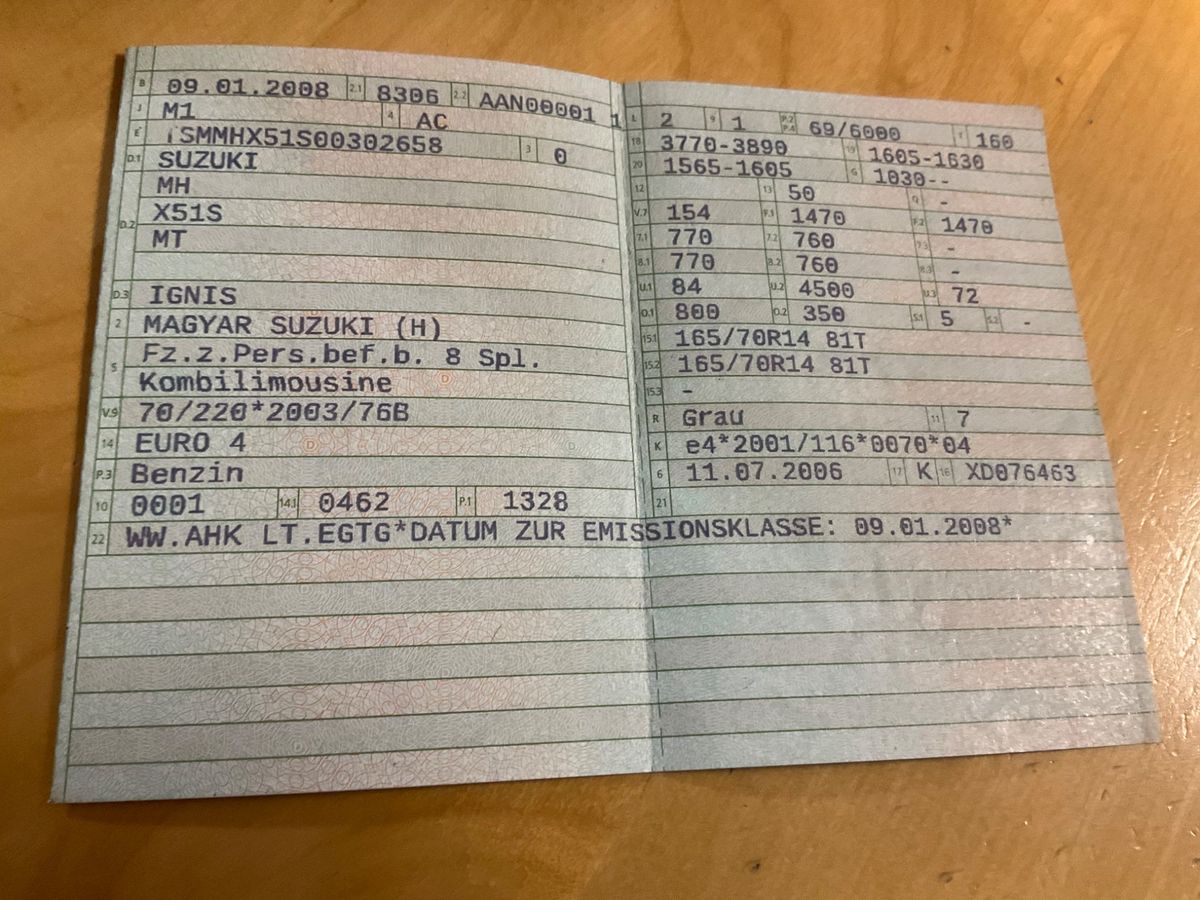 B 09.01.2008 2.1 8306 2.2 AAN00001 1
J M1 4 AC
E TSMMHX51S00302658 3 0
D.1 SUZUKI
MH
D.2 X51S
MT
D.3 IGNIS
2 MAGYAR SUZUKI (H)
5 Fz.z.Pers.bef.b. 8 Spl.
Kombilimousine
V.9 70/220*2003/76B
14 EURO 4
P.3 Benzin
10 0001 14.1 0462 P.1 1328
22 WW.AHK LT.EGTG*DATUM ZUR EMISSIONSKLASSE: 09.01.2008*
L 2 9 1 P.2 P.4 69/6000 T 160
18 3770-3890 19 1605-1630
20 1565-1605 G 1030--
12 13 50 Q -
V.7 154 F.1 1470 F.2 1470
7.1 770 7.2 760 7.3 -
8.1 770 8.2 760 8.3 -
U.1 84 U.2 4500 U.3 72
O.1 800 O.2 350 S.1 5 S.2 -
15.1 165/70R14 81T
15.2 165/70R14 81T
15.3 -
R Grau 11 7
K e4*2001/116*0070*04
6 11.07.2006 17 K 16 XD076463
21